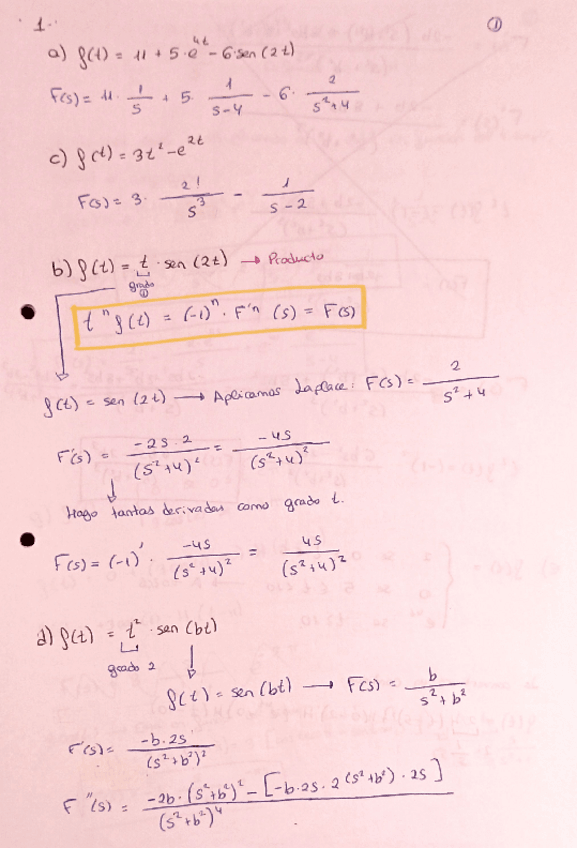 1.- ①
a) f(t) = 11 + 5·e^4t - 6·sen(2t)
F(s) = 11· 1/s + 5· 1/(s-4) - 6· 2/(s²+4)
c) f(t) = 3t² - e^2t
F(s) = 3· 2!/s³ - 1/(s-2)
b) f(t) = t · sen(2t) → Producto
grado ①
t^n f(t) = (-1)^n · F'^n (s) = F(s)
f(t) = sen(2t) → Aplicamos Laplace: F(s) = 2/(s²+4)
F'(s) = -2s·2/(s²+4)² = -4s/(s²+4)²
Hago tantas derivadas como grado t.
F(s) = (-1)^1 · -4s/(s²+4)² = 4s/(s²+4)²
d) f(t) = t² · sen(bt)
grado 2
f(t) = sen(bt) → F(s) = b/(s²+b²)
F'(s) = -b·2s/(s²+b²)²
F''(s) = -2b·(s²+b²)² - [-b·2s·2(s²+b²)·2s]/(s²+b²)⁴